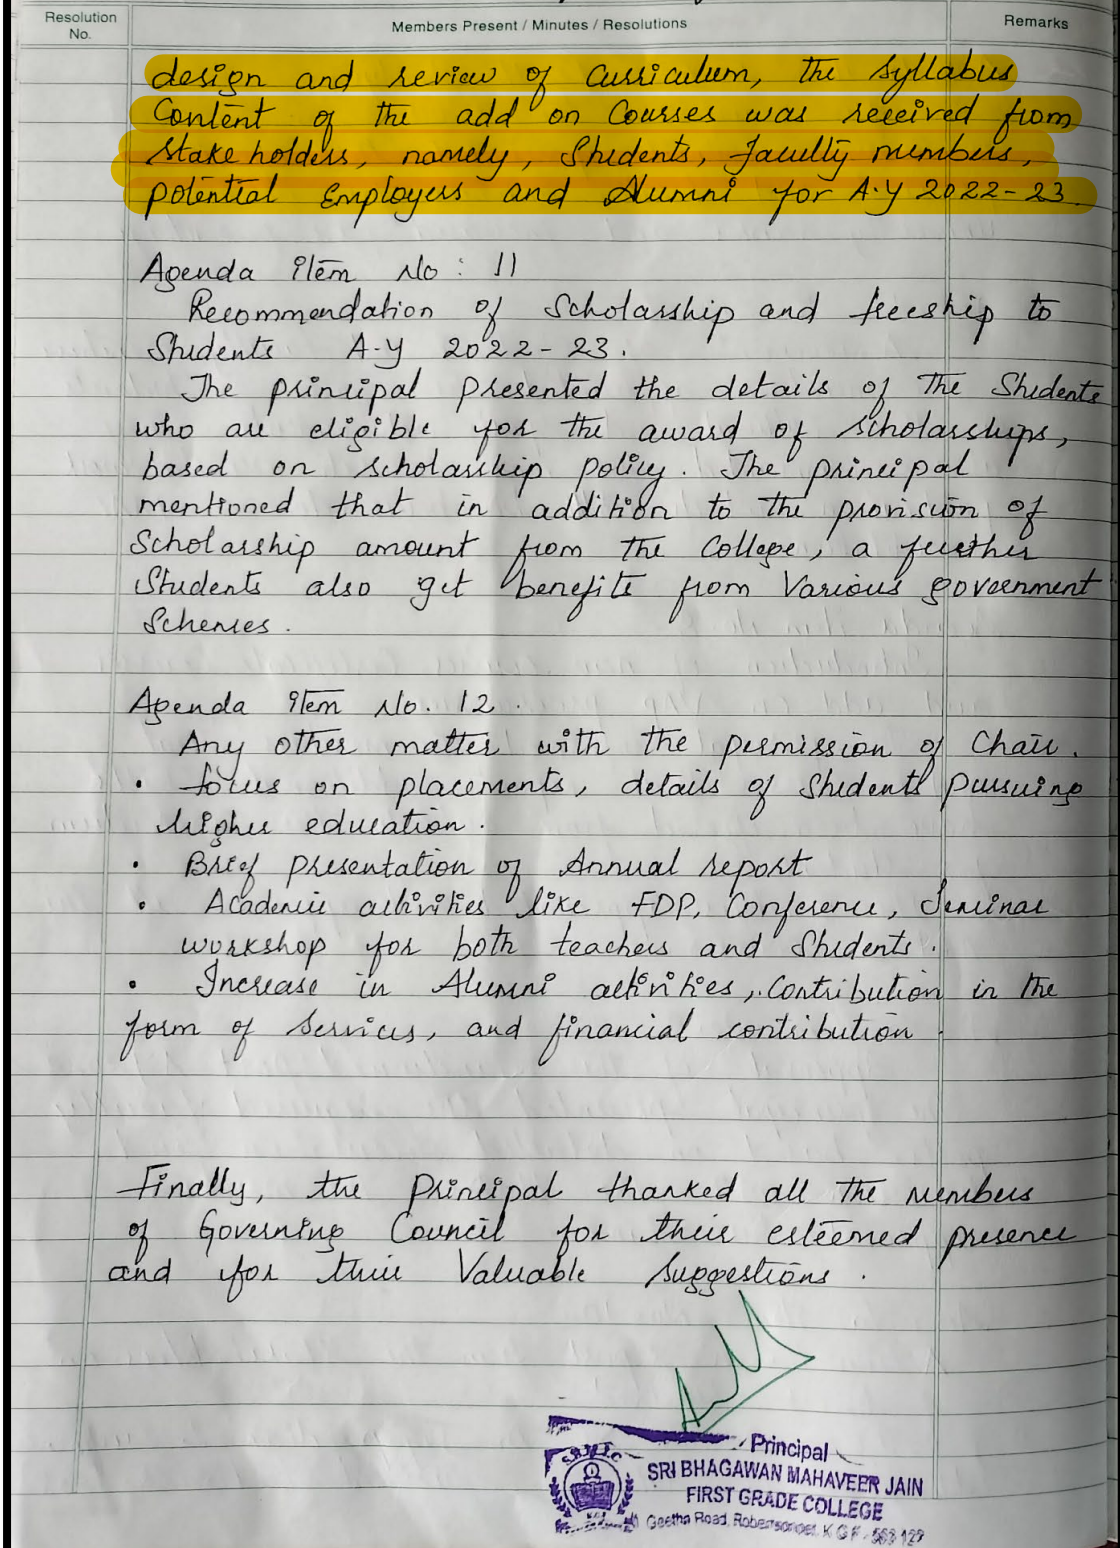 Resolution No.
Members Present / Minutes / Resolutions
Remarks
design and review of curriculum, the syllabus
Content of the add on Courses was received from
Stake holders, namely, Students, faculty members,
potential Employers and Alumni for A.Y 2022-23.
Agenda item No : 11
Recommendation of Scholarship and freeship to
Students A-Y 2022-23.
The principal presented the details of the Students
who are eligible for the award of scholarships,
based on scholarship policy. The principal
mentioned that in addition to the provision of
Scholarship amount from the College, a further
Students also get benefits from Various government
Schemes.
Agenda item No. 12.
Any other matter with the permission of Chair.
• focus on placements, details of Students pursuing
higher education.
• Brief presentation of Annual report
• Academic activities like FDP, Conference, Seminar
workshop for both teachers and Students.
• Increase in Alumni activities, Contribution in the
form of Services, and financial contribution.
Finally, the Principal thanked all the members
of Governing Council for their esteemed presence
and for their Valuable Suggestions.
Principal
SRI BHAGAWAN MAHAVEER JAIN
FIRST GRADE COLLEGE
Geetha Road, Robertsonpet, K G F - 563 122